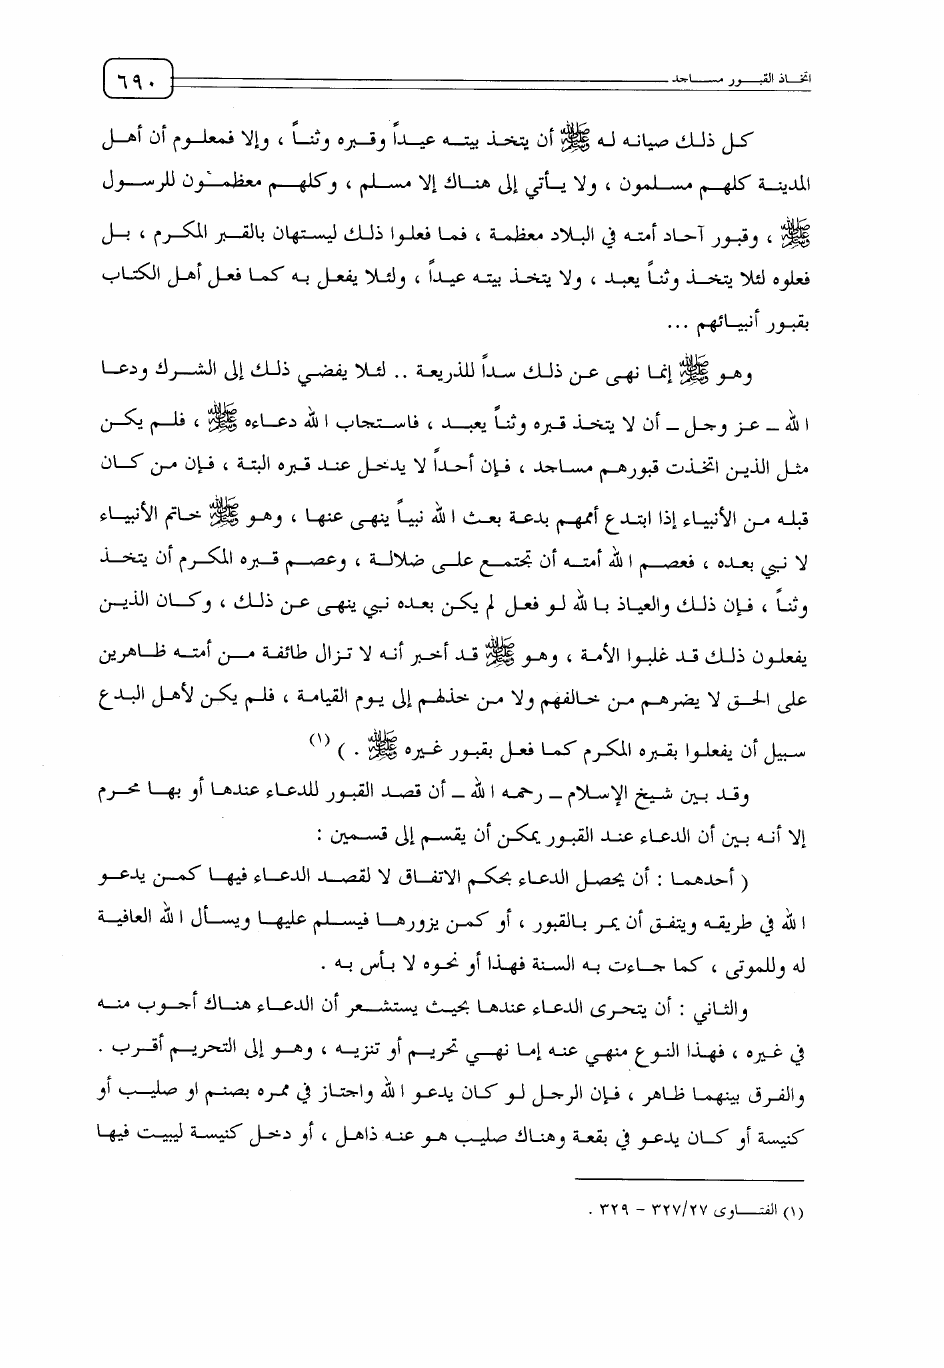 اتخاذ القبور مساجد
٦٩٠
كل ذلك صيانه له ﷺ أن يتخذ بيته عيداً وقبره وثناً ، وإلا فمعلوم أن أهل
المدينة كلهم مسلمون ، ولا يأتي إلى هناك إلا مسلم ، وكلهم معظمون للرسول
ﷺ ، وقبور آحاد أمته في البلاد معظمة ، فما فعلوا ذلك ليستهان بالقبر المكرم ، بل
فعلوه لئلا يتخذ وثناً يعبد ، ولا يتخذ بيته عيداً ، ولئلا يفعل به كما فعل أهل الكتاب
بقبور أنبيائهم ...
وهو ﷺ إنما نهى عن ذلك سداً للذريعة .. لئلا يفضي ذلك إلى الشرك ودعا
الله – عز وجل – أن لا يتخذ قبره وثناً يعبد ، فاستجاب الله دعاءه ﷺ ، فلم يكن
مثل الذين اتخذت قبورهم مساجد ، فإن أحداً لا يدخل عند قبره البتة ، فإن من كان
قبله من الأنبياء إذا ابتدع أممهم بدعة بعث الله نبياً ينهى عنها ، وهو ﷺ خاتم الأنبياء
لا نبي بعده ، فعصم الله أمته أن تجتمع على ضلالة ، وعصم قبره المكرم أن يتخذ
وثناً ، فإن ذلك والعياذ بالله لو فعل لم يكن بعده نبي ينهى عن ذلك ، وكان الذين
يفعلون ذلك قد غلبوا الأمة ، وهو ﷺ قد أخبر أنه لا تزال طائفة من أمته ظاهرين
على الحق لا يضرهم من خالفهم ولا من خذلهم إلى يوم القيامة ، فلم يكن لأهل البدع
سبيل أن يفعلوا بقبره المكرم كما فعل بقبور غيره ﷺ . ) (١)
وقد بين شيخ الإسلام – رحمه الله – أن قصد القبور للدعاء عندها أو بها محرم
إلا أنه بين أن الدعاء عند القبور يمكن أن يقسم إلى قسمين :
( أحدهما : أن يحصل الدعاء بحكم الاتفاق لا لقصد الدعاء فيها كمن يدعو
الله في طريقه ويتفق أن يمر بالقبور ، أو كمن يزورها فيسلم عليها ويسأل الله العافية
له وللموتى ، كما جاءت به السنة فهذا أو نحوه لا بأس به .
والثاني : أن يتحرى الدعاء عندها بحيث يستشعر أن الدعاء هناك أجوب منه
في غيره ، فهذا النوع منهي عنه إما نهي تحريم أو تنزيه ، وهو إلى التحريم أقرب .
والفرق بينهما ظاهر ، فإن الرجل لو كان يدعو الله واجتاز في ممره بصنم او صليب أو
كنيسة أو كان يدعو في بقعة وهناك صليب هو عنه ذاهل ، أو دخل كنيسة ليبيت فيها
(١) الفتاوى ٣٢٧/٢٧ – ٣٢٩ .